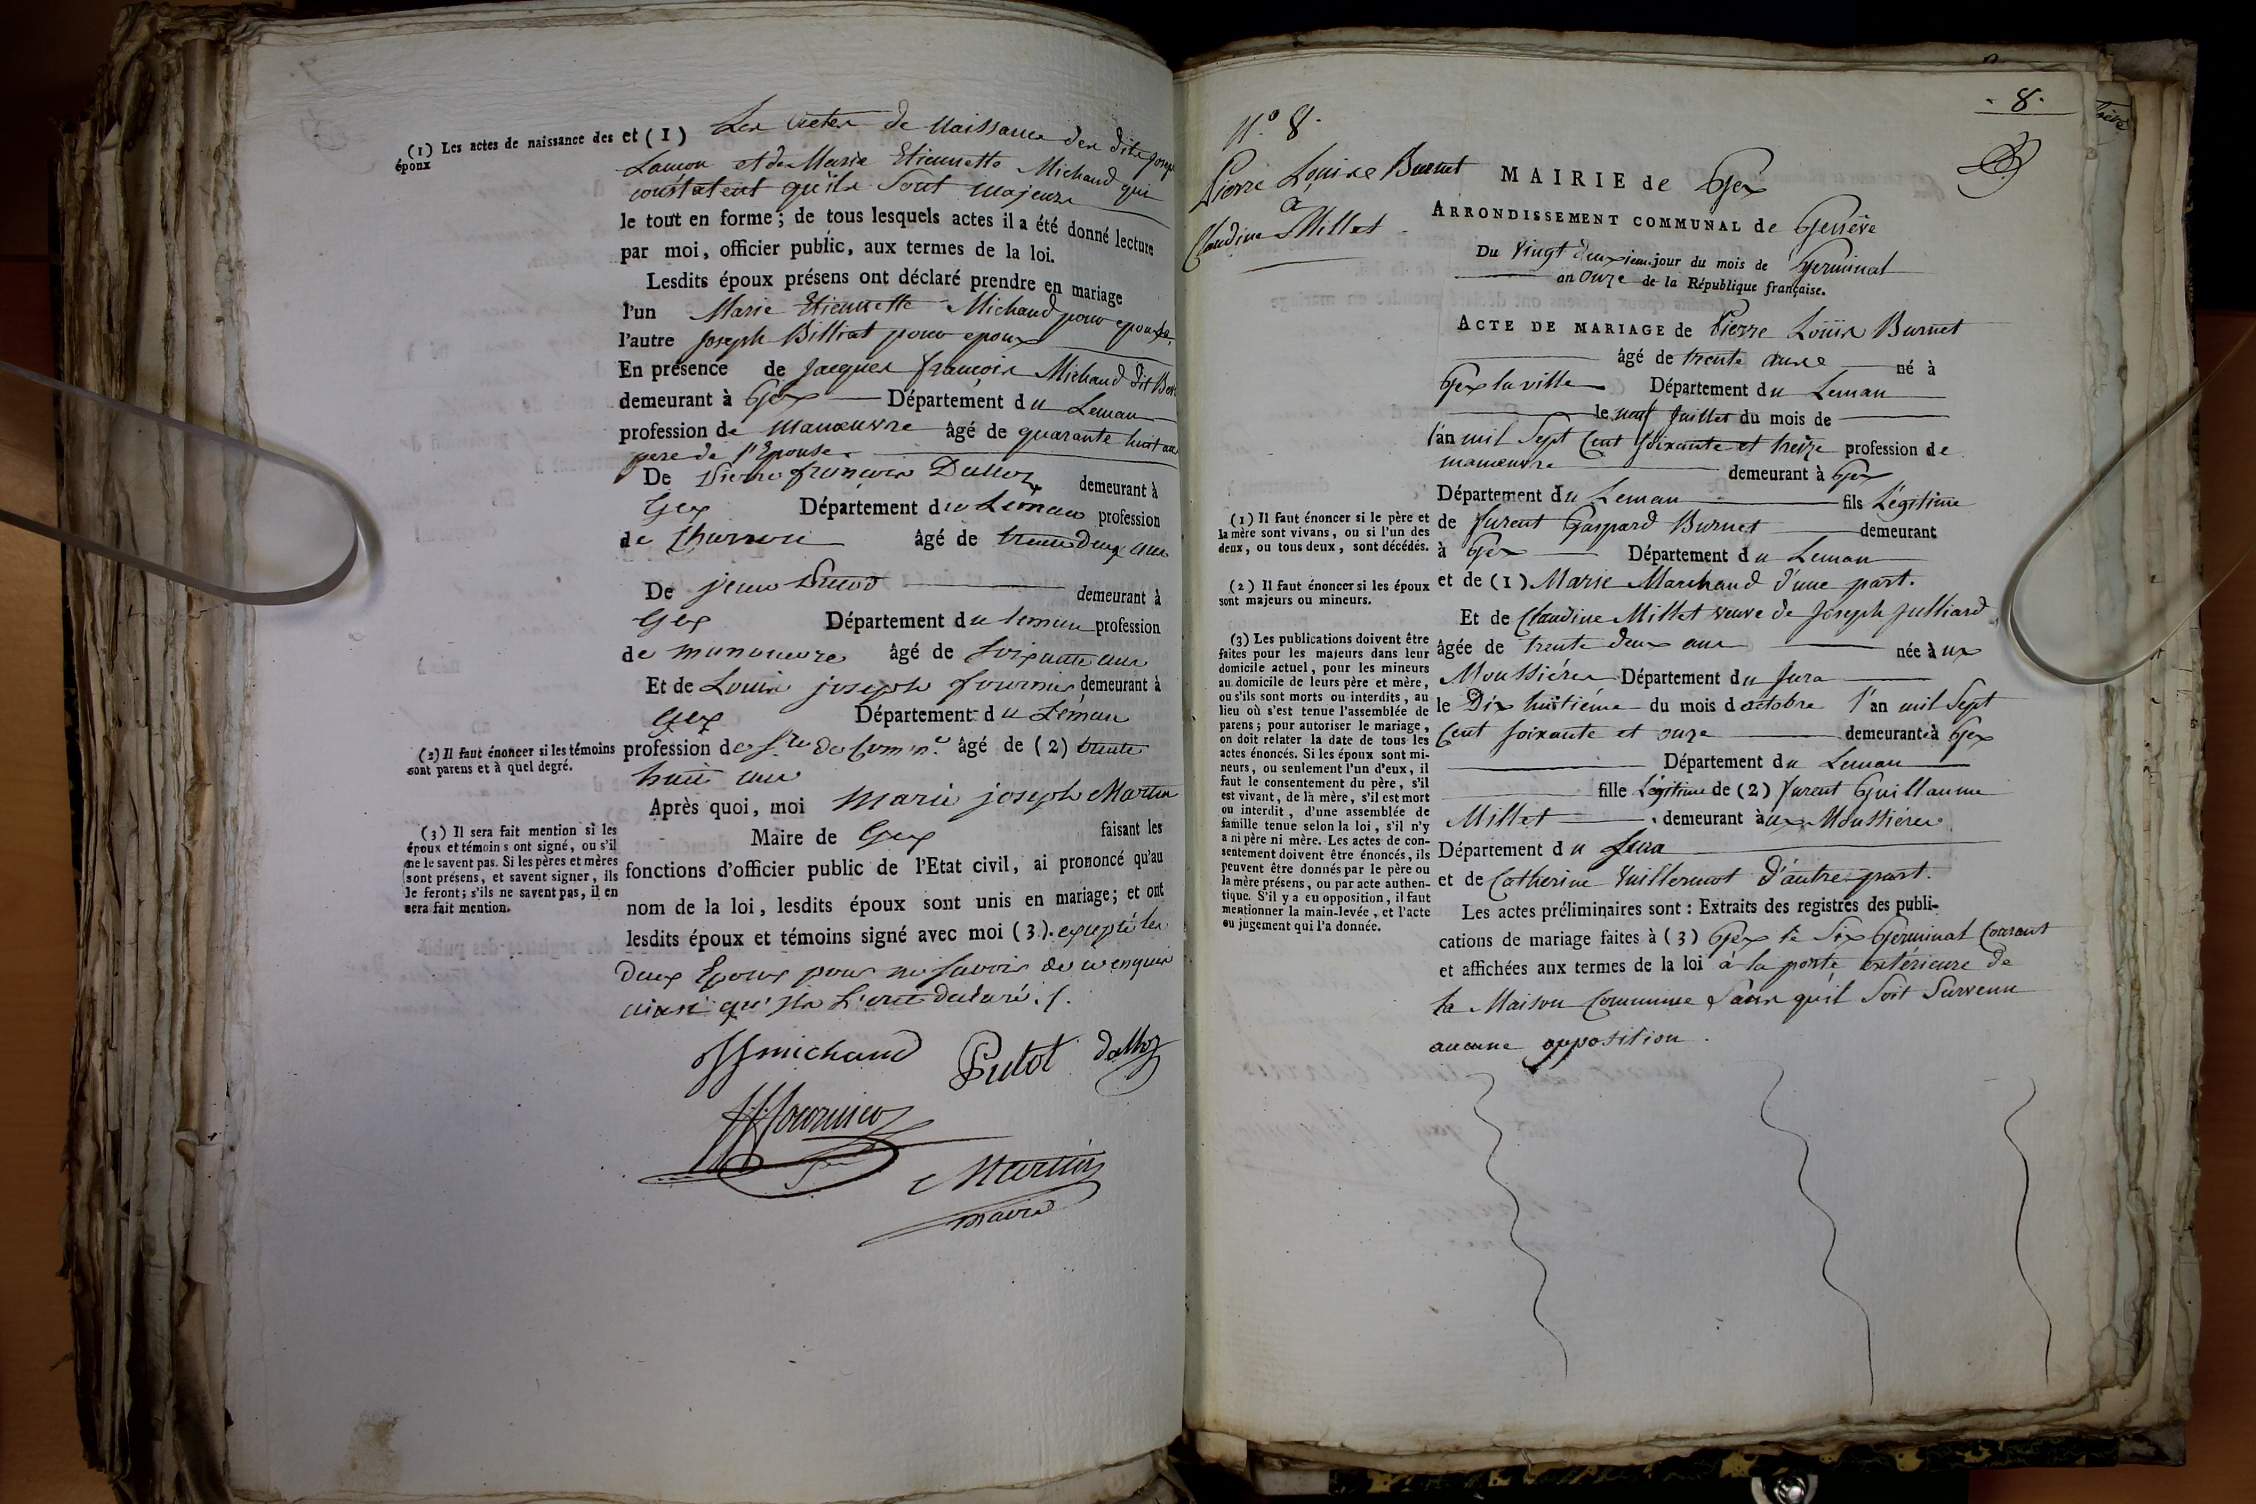 (1) Les actes de naissance des
époux
et (1) Les actes de Naissance des dits Joseph
et de Marie Etiennette Michaud qui
constatent qu'ils sont majeurs
le tout en forme; de tous lesquels actes il a été donné lecture
par moi, officier public, aux termes de la loi.
Lesdits époux présens ont déclaré prendre en mariage
l'un Marie Etiennette Michaud pour epouse,
l'autre Joseph Billiat pour epoux
En présence de Jacques françois Michaud dit
demeurant à Gex Département du Leman
profession de manœuvre âgé de quarante huit ans
pere de l'Epouse.
De Pierre françois Dalloz demeurant à
Gex Département du Léman profession
de âgé de trente deux ans
De jean demeurant à
Gex Département du leman profession
de manoeuvre âgé de soixante ans
Et de Louis joseph fournier demeurant à
Gex Département du Léman
(2) Il faut énoncer si les témoins
sont parens et à quel degré.
profession de âgé de (2) trente
huit ans
Après quoi, moi Marie joseph Martin
Maire de Gex faisant les
(3) Il sera fait mention si les
époux et témoins ont signé, ou s'il
ne le savent pas. Si les pères et mères
sont présens, et savent signer, ils
le feront; s'ils ne savent pas, il en
sera fait mention.
fonctions d'officier public de l'Etat civil, ai prononcé qu'au
nom de la loi, lesdits époux sont unis en mariage; et ont
lesdits époux et témoins signé avec moi (3). excepté les
deux Epoux pour ne savoir de ce enquis
ainsi qu'ils l'ont declaré ./.
michaud Putot dalloz
fournier
Martin
maire
8.
N.º 8.
Pierre Louis Burnet
à
Claudine Millet
MAIRIE de Gex
ARRONDISSEMENT COMMUNAL de Genève
Du Vingt deuxiem. jour du mois de Germinal
an Onze de la République française.
ACTE DE MARIAGE de Pierre Louis Burnet
âgé de trente ans né à
Gex la ville Département du Leman
le neuf Juillet du mois de
l'an mil Sept Cent soixante et treize profession de
manœuvre demeurant à Gex
Département du Leman fils Légitime
(1) Il faut énoncer si le père et
la mère sont vivans, ou si l'un des
deux, ou tous deux, sont décédés.
de furent Gaspard Burnet demeurant
à Gex Département du Leman
(2) Il faut énoncer si les époux
sont majeurs ou mineurs.
et de (1) Marie Marchand d'une part.
Et de Claudine Millet veuve de Joseph Julliard
(3) Les publications doivent être
faites pour les majeurs dans leur
domicile actuel, pour les mineurs
au domicile de leurs père et mère,
ou s'ils sont morts ou interdits, au
lieu où s'est tenue l'assemblée de
parens; pour autoriser le mariage,
on doit relater la date de tous les
actes énoncés. Si les époux sont mi-
neurs, ou seulement l'un d'eux, il
faut le consentement du père, s'il
est vivant, de la mère, s'il est mort
ou interdit, d'une assemblée de
famille tenue selon la loi, s'il n'y
a ni père ni mère. Les actes de con-
sentement doivent être énoncés, ils
peuvent être donnés par le père ou
la mère présens, ou par acte authen-
tique. S'il y a eu opposition, il faut
mentionner la main-levée, et l'acte
ou jugement qui l'a donnée.
âgée de trente deux ans née à ux
Moussiéres Département du Jura
le Dix huitiéme du mois d octobre l'an mil Sept
Cent soixante et onze demeurante à Gex
Département du Leman
fille Légitime de (2) furent Guillaume
Millet demeurant à ux Moussiéres
Département du Jura
et de Catherine Vuillermoz d'autre part.
Les actes préliminaires sont : Extraits des registres des publi-
cations de mariage faites à (3) Gex le Six Germinal Courant
et affichées aux termes de la loi à la porte extérieure de
la Maison Commune Sans qu'il Soit Survenu
aucune opposition.